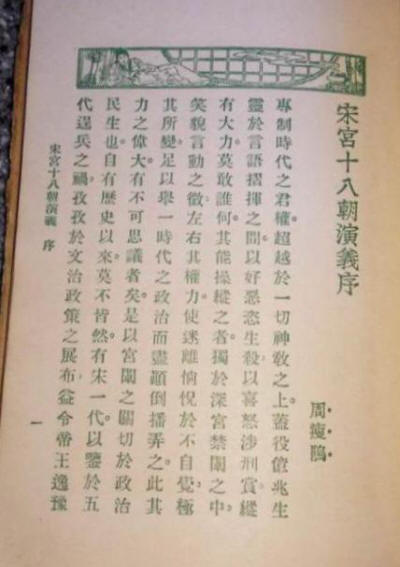 宋宮十八朝演義序
周瘦鵑
專制時代之君權。超越於一切神敎之上。蓋役億兆生
靈於言語指揮之間。以好惡恣生殺。以喜怒涉刑賞。縱
有大力。莫敢誰何。其能操縱之者。獨於深宮禁闈之中。
笑貌言動之微。左右其權力。使迷離惝怳於不自覺。極
其所變。足以舉一時代之政治而盡顚倒播弄之。此其
力之偉大。有不可思議者矣。是以宮闈之關切於政治
民生也。自有歷史以來。莫不皆然。有宋一代。以鑒於五
代逞兵之禍。孜孜於文治政策之展布。益令帝王逸豫
宋宮十八朝演義 序
一